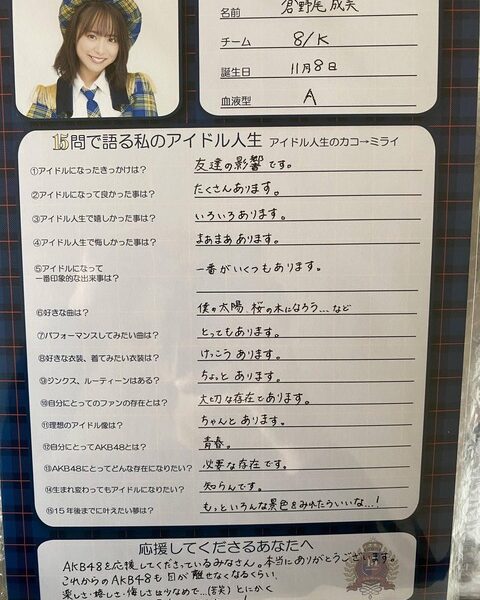 名前 倉野尾 成美
チーム 8/K
誕生日 11月8日
血液型 A
15問で語る私のアイドル人生 アイドル人生のカコ→ミライ
①アイドルになったきっかけは? 友達の影響です。
②アイドルになって良かった事は? たくさんあります。
③アイドル人生で嬉しかった事は? いろいろあります。
④アイドル人生で悔しかった事は? まあまああります。
⑤アイドルになって
一番印象的な出来事は? 一番がいくつもあります。
⑥好きな曲は? 僕の太陽、桜の木になろう...など
⑦パフォーマンスしてみたい曲は? とってもあります。
⑧好きな衣装、着てみたい衣装は? けっこうあります。
⑨ジンクス、ルーティーンはある? ちょっとあります。
⑩自分にとってのファンの存在とは? 大切な存在であります。
⑪理想のアイドル像は? ちゃんとあります。
⑫自分にとってAKB48とは? 青春。
⑬AKB48にとってどんな存在になりたい? 必要な存在です。
⑭生まれ変わってもアイドルになりたい? 知らんです。
⑮15年後までに叶えたい夢は? もっといろんな景色をみれたらいいな...!
応援してくださるあなたへ
AKB48を応援してくださっているみなさん。本当にありがとうございます。
これからのAKB48も目が離せなくなるくらい
楽しさ・嬉しさ・悔しさは少なめで...(苦笑)とにかく